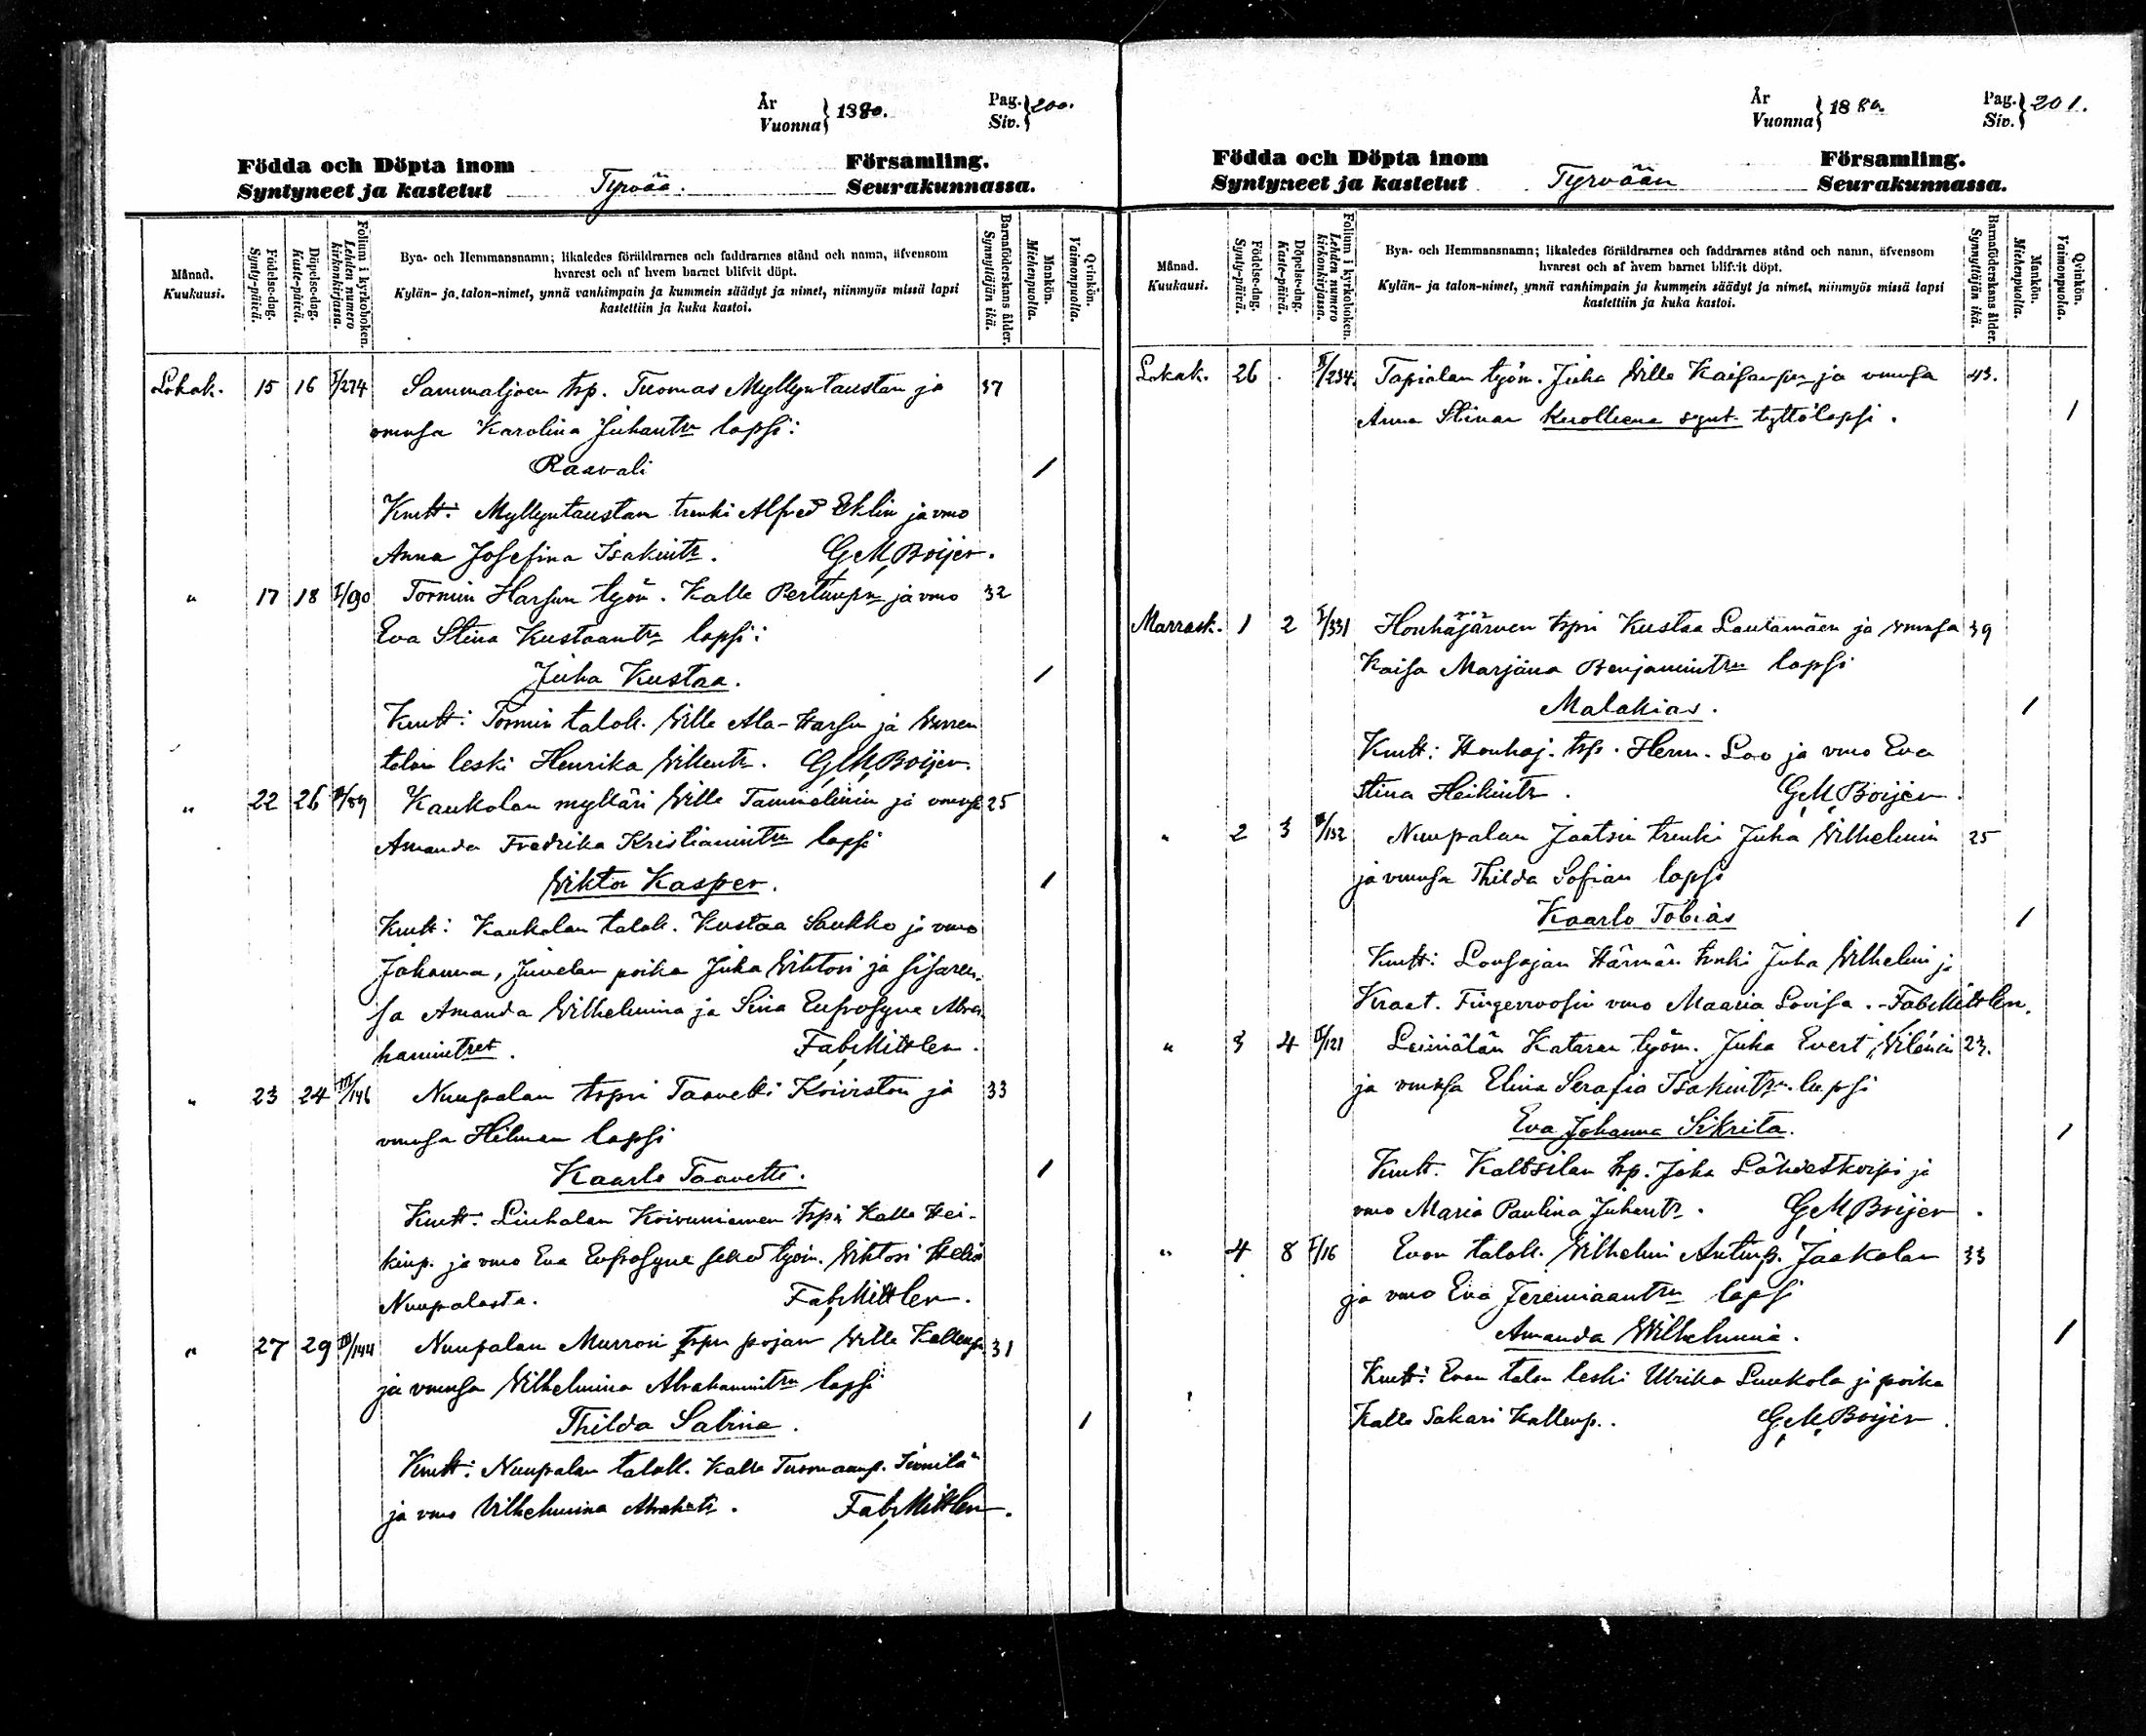 År
Vuonna } 1880.
Pag.
Siv. } 200.
Födda och Döpta inom Församling.
Syntyneet ja kastetut Tyrvää. Seurakunnassa.
Månad.
Kuukausi.
Födelse-dag.
Synty-päivä.
Döpelse-dag.
Kaste-päivä.
Folium i kyrkoboken.
Lehden numero
kirkonkirjassa.
Bya- och Hemmansnamn; likaledes föräldrarnes och faddrarnes stånd och namn, äfvensom
hvarest och af hvem barnet blifvit döpt.
Kylän- ja talon-nimet, ynnä vanhimpain ja kummein säädyt ja nimet, niinmyös missä lapsi
kastettiin ja kuka kastoi.
Barnaföderskans ålder.
Synnyttäjän ikä.
Mankön.
Miehenpuolta.
Qvinkön.
Vaimonpuolta.
Lokak. 15 16 I/274 Sammaljoen tsp. Tuomas Myllyntaustan ja 37
vmnsa Karolina Juhantr lapsi:
Raavali /
Kmtt: Myllyntaustan trenki Alfred Eklin ja vmo
Anna Josefina Isakintr. G. M. Boijer.
" 17 18 I/90 Tormin Harsun työm. Kalle Pertunpn ja vmo 32
Eva Stina Kustaantrn lapsi:
Juha Kustaa. /
Kmtt: Tormin talok. Wille Ala-Harsu ja
talon leski Henrika Willentr. G. M. Boijer.
" 22 26 /89 Kaukolan mylläri Wille Tammelinin ja vmnsa 25
Amanda Fredrika Kristianintrn lapsi
Wiktor Kasper. /
Kmtt: Kaukolan talok. Kustaa Saukko ja vmo
Johanna, Junelan poika Juha Wihtori ja sisaren-
sa Amanda Wilhelmina ja Sina Eufrosyne Abra-
hamintret. Fab. Mittler.
" 23 24 III/146 Nuupalan tspri Taavetti Koiviston ja 33
vmnsa Hilman lapsi
Kaarle Taavetti. /
Kmtt: Liuhalan Koivuniemen tspi Kalle Hei-
kinp. ja vmo Eva Eufrosyne sekä työm. Wihtori
Nuupalasta. Fab. Mittler.
" 27 29 III/144 Nuupalan Murron tspn pojan Wille Kallenpn 31
ja vmnsa Wilhelmina Abrahamintrn lapsi
Thilda Sabina. /
Kmtt: Nuupalan talok. Kalle Tuomaanp. Sinnilä
ja vmo Wilhelmina Abrahtr. Fab. Mittler.
År
Vuonna } 1880.
Pag.
Siv. } 201.
Födda och Döpta inom Församling.
Syntyneet ja kastetut Tyrvään Seurakunnassa.
Månad.
Kuukausi.
Födelse-dag.
Synty-päivä.
Döpelse-dag.
Kaste-päivä.
Folium i kyrkoboken.
Lehden numero
kirkonkirjassa.
Bya- och Hemmansnamn; likaledes föräldrarnes och faddrarnes stånd och namn, äfvensom
hvarest och af hvem barnet blifvit döpt.
Kylän- ja talon-nimet, ynnä vanhimpain ja kummein säädyt ja nimet, niinmyös missä lapsi
kastettiin ja kuka kastoi.
Barnaföderskans ålder.
Synnyttäjän ikä.
Mankön.
Miehenpuolta.
Qvinkön.
Vaimonpuolta.
Lokak. 26 . II/234 Tapiolan työm. Juha Wille Kaisanpn ja vmnsa 43.
Anna Stinan kuolleena synt. tyttölapsi. /
Marrask. 1 2 I/331 Houhajärven tspri Kustaa Lautamäen ja vmnsa 39
Kaisa Marjana Benjamintrn lapsi
Malakias. /
Kmtt: Houhaj. tsp. Herm. Loo ja vmo Eva
Stina Heikintr. G. M. Boijer.
" 2 3 /132 Nuupalan Jaatsin trenki Juha Wilhelmin 25
ja vmnsa Thilda Sofian lapsi
Kaarlo Tobias /
Kmtt: Lousajan Härmän trnki Juha Wilhelm ja
Kraat. Fingerroosin vmo Maaria Lovisa. - Fab. Mittler.
" 3 4 II/121 Leiniälän Kataran työm. Juha Evert Wilénin 23.
ja vmnsa Elina Serafia Isakintrn lapsi
Eva Johanna Sikrita. /
Kmtt. Kaltsilan tsp. Joha Lähdetkorpi ja
vmo Maria Paulina Juhantr. G. M. Boijer.
" 4 8 I/16 Evon talok. Wilhelm Antinp. Jaakolan 33
ja vmo Eva Jeremiaantrn lapsi
Amanda Wilhelmina. /
Kmtt: Evon talon leski Ulrika Luukola ja poika
Kalle Sakari Kallenp.. G. M. Boijer.